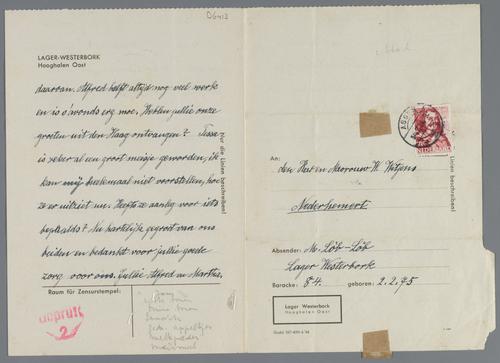 D6413
LAGER-WESTERBORK
Hooghalen Oost
daarvan. Alfred heeft altijd nog veel werk
en is s'avonds erg moe. Hebben jullie onze
groeten uit den Haag ontvangen?
is zeker al een groot meisje geworden, ik
kan mij heelemaal niet voorstellen, hoe
ze er uitziet nu. Heeft ze aanleg voor iets
bepaalds? Nu hartelijk gegroet van ons
beiden en bedankt voor jullie goede
zorg voor ons. Jullie Alfred en Martha.
Nur die Linien beschreiben!
Raum für Zensurstempel:
Geprüft
2
ASSEN
NEDERLAND
An:
den Heer en Mevrouw W. Witjens
Nederhemert
Linien beschreiben!
Absender: M. Löb-Löb
Lager Westerbork
Baracke: 84. geboren: 2.2.95
Lager Westerbork
Hooghalen Oost